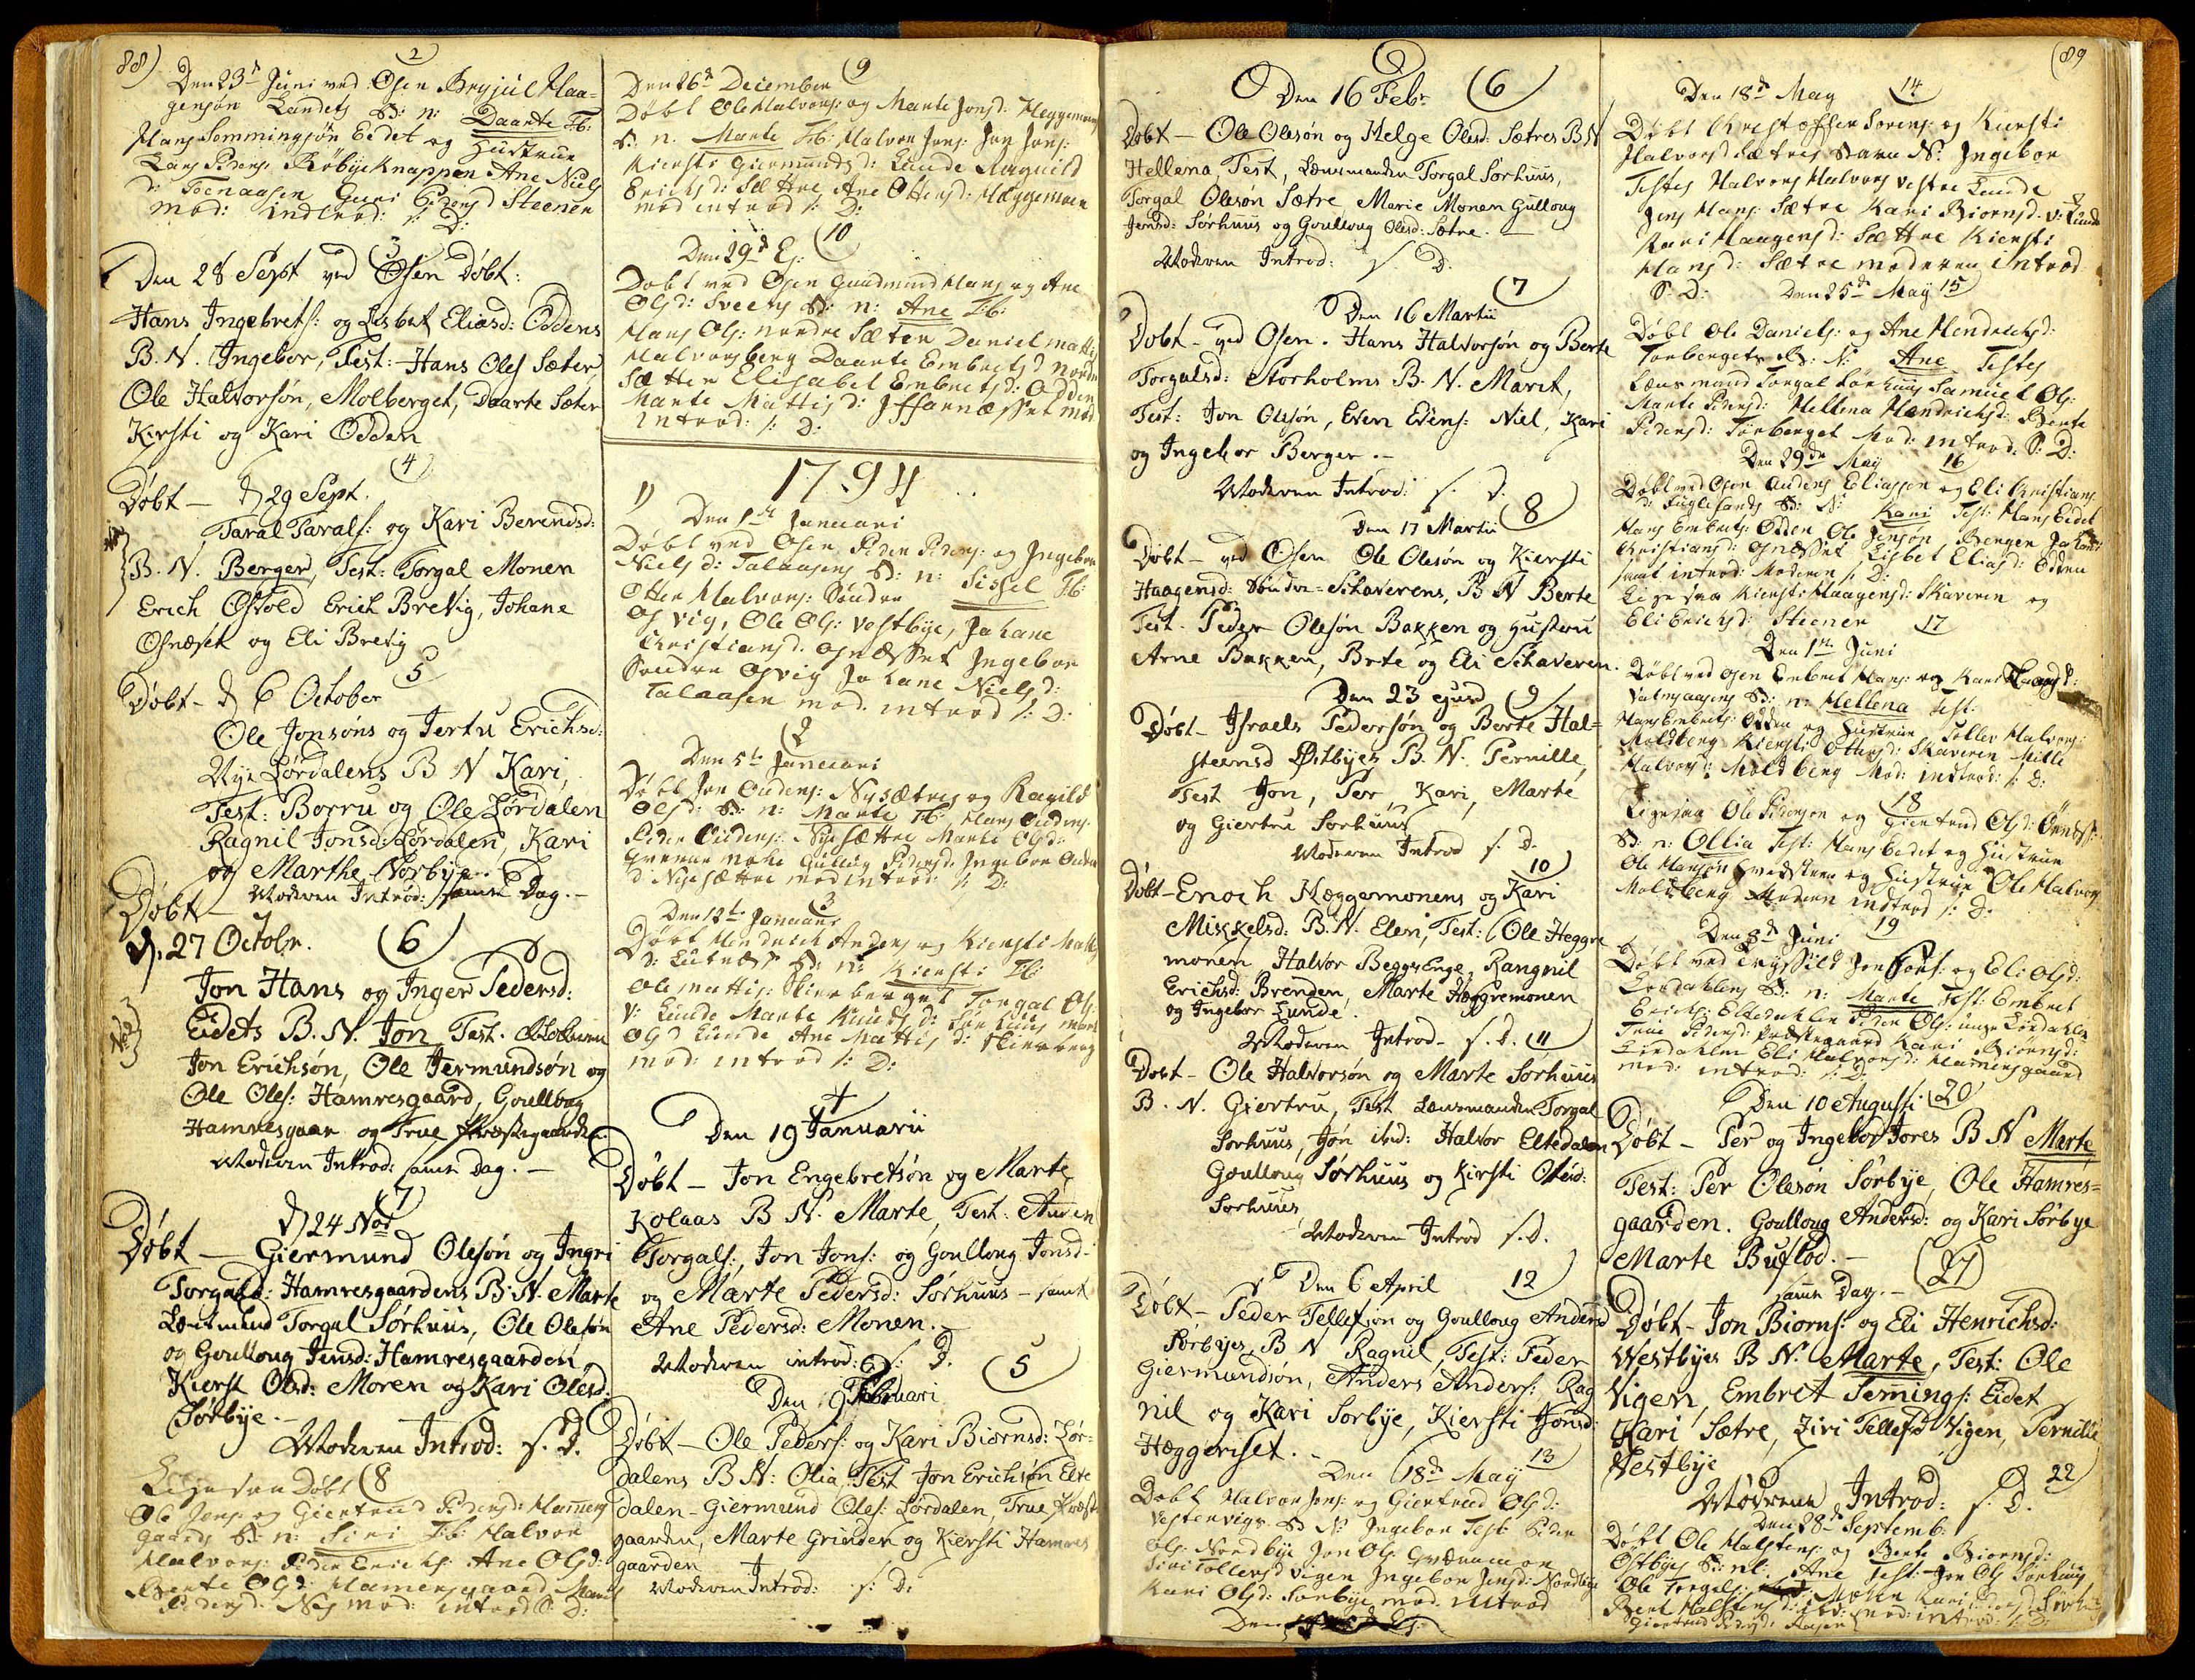 88)
2
Den 23d Juni ved Osen Bryjul Haa=
gensøn Landets B: n: Daarte Fb:
Hans Semmingsøn Eidet og Hustrue
Lars Peders: Røbyeknappen Ane Niels
d: Toenaasen Guri Pedersd Steenen
mod: indtrod: s: D:
3
Den 28 Sept ved Osen Døbt:
Hans Ingebrets: og Lisbet Eliasd: Oddens
B. N. Ingebor, Test: Hans Oles Sæter,
Ole Halvorsøn, Molberget, Daarte Sæter
Kirsti og Kari Odden
4
Døbt — d 29 Sept.
Taral Tarals: og Kari Berendsd:
B. N. Berger, Test: Torgal Monen
Erich Osvold Erich Brevig, Johane
Osnæset og Eli Brevig
5
Døbt - d 6 October
Ole Jonsøns og Jertru Erichsd:
Nye Lørdalens B N Kari,
Test: Borru og Ole Lørdalen
Ragnil Jonsd: Lørdalen, Kari
og Marthe Nørbye.
Moderen Introd: samme Dag. -
Døbt —
d. 27 Octobr. 6
Jon Hans og Inger Pedersd:
Eidets B. N. Jon, Test:
Jon Erichsøn, Ole Jermundsøn og
Ole Oles: Hamresgaard, Goulloug
Hamresgaar og True Præstegaarden.
Moderen Introd: samme Dag. —
7
d 24 Nov
Døbt — Giermund Olesøn og Ingri
Torgalsd: Hamresgaardens B. N. Marte
Torgal Sørhuus, Ole Olesøn
og Goulloug Jensd: Hamresgaarden
Kierst Olsd: Moren og Kari Olesd:
Sørbye. -
Moderen Introd: s. D.
Ligesaa Døbt 8
Ole Jens: og Giertrud Pedersd: Hamers
gaards B: n: Siri Fb: Halvor
Halvors: Peder Erichs: Ane Olsd:
Berte Olsd: Hamersgaard Marit
Pedersd: Næs mod: introd S: D:
9
Den 26d December
Døbt Ole Halvors: og Marte Jonsd: Heggemoen
B. n. Marte Fb: Halvor Jens: Jon Jons:
Kiersti Giermundsd: Lunde Ragnild
Erichsd: Sættre Ane Ottersd: Heggemoen
mod introd s: D:
10
Den 29d Ej:
Døbt ved Osen Gundmund Hans og Ane
Olsd: Sveens B: n: Ane Fb:
Hans Ols: nordre Sæter Daniel Mattis
Halvorsberg Daarte Embretsd Nordre
Sætter Elisabet Embretsd: Odden
Marte Mattisd: Ossarnæsset mod
introd: s: D:
1794
1) Den 1te Januari
Døbt ved Osen Peder Peders: og Ingebor
Nielsd: Talaasens B: n: Sissel Fb:
Otter Halvors: Søndre
Osvig, Ole Ols: Vestbye, Johane
Christiansd. Osnæsset Ingebor
Søndre Osvig Johane Nielsd:
Talaasen mod. introd s: D:
2
Den 5te Januari
Døbt Jon Oudens: Nysætres og Ragnild
Olsd: B: n: Marte Fb: Hans Oudens:
Peder Oudens: Nyesættre Marte Olsd:
Gullug Pedersd: Ingebor Ouden
d: Nyesættre mod introd: s: D:
3
Den 12te Januari
Døbt Hendrich Anders og Kiersti Mattis
d: Lutnæss B: n: Kiersti Fb:
Ole Mattis: Skierberget Torgal Ols:
V: Lunde Marte Knudsd: Sørhuus Marte
Olsd Lunde Ane Mattisd: Skierberg
mod: introd s: D:
4
Den 19 Januarii
Døbt — Jon Engebretsøn og Marte
Kolaas B N. Marte, Test: Auden
Torgals:, Jon Jons: og Goulloug Jonsd-
og Marte Pedersd: Sørhuus - samt
Ane Pedersd: Monen. —
Moderen introd: s: D. 5
Den 9 Februari
Døbt — Ole Peders: og Kari Biørnsd: Lør=
dalens B N: Olia, Test Jon Erichsøn Elte
dalen - Giermund Oles: Lørdalen, True Præste
gaarden, Marte Grinden og Kiersti Hamres
gaarden
Moderen Introd: s: D:
Den 16 Febr. 6
Døbt — Ole Olesøn og Helge Olesd: Sætres B N
Hellena, Test, Lænsmanden Torgal Sørhuus,
Torgal Olesøn Sætre Marie Monen Gulloug
Jernsd: Sørhuus og Goulloug Olesd: Sætre. —
Moderen Introd: s. D.
7
Den 16 Martii
Døbt - ved Osen. Hans Halvorsøn og Berte
Torgalsd: Storholms B. N. Marit,
Test: Jon Olesøn, Even Evens: Niel, Kari
og Ingebor Berger. -
Moderen Introd: s. D.
8
Den 17 Martii
Døbt - ved Osen Ole Olesøn og Kiersti
Haagensd: Søndre=Skaverens, B N Berte
Test. Peder Olesøn Bakken og Hustru
Arne Bakken, Brte og Eli Skaveren.
Den 23 ejusd 9
Døbt - Israels Pedersøn og Berte Hal=
steensd Østbyes B. N. Pernille,
Test Jon, Per, Kari, Marte
og Giertru Sørhuus
Moderen Introd s. D.
10
Døbt - Enoch Hæggemonens og Kari
Mikkelsd: B. N. Eleri, Test: Ole Heggre
monem Halvor BeggsEnge, Rangnil
Erichsd: Brenden, Marte Heggremonen
og Ingebor Lunde.
Moderen Introd- s. D. 11
Døbt - Ole Halvorsøn og Marte Sørhuus
B. N. Giertru, Test Lænsmanden Torgal
Sørhuus, Jøn ibid: Halvor Eltedalen
Goulloug Sørhuus og Kirsti
Sørhuus
Moderen Introd s. D.
Den 6 April 12
Døbt - Peder Tellefsøn og Goulloug Andersd
Sørbyes, B N Ragnil, Test: Peder
Giermundsøn, Anders Anders: Rag
nil og Kari Sørbye, Kiersti Jonsd:
Hæggeriset. -
Den 18d May 13
Døbt Halvor Jens: og Giertrud Olsd:
Vestervigs B N: Ingebor Test Peder
Ols: Nordbye Jon Ols: Grønmoen
Siri Tollersd Vigen Ingebor Jensd: Nordbye
Kari Olsd: Sørbye, mod. introd
Den
(89
Den 18d May 14
Døbt Christoffer Sørens: og Kiersti
Halvorsd Sætres Barn N: Ingebor
Testes Halvors Halvors Vestre Lunde
Jens Hans: Sætre Kari Biørnsd: V: Lunde
Kari Haagensd: Sættre Kiersti
Hansd: Sætre moderen introd
S: D: Den 25d May 15
Døbt Ole Daniels: og Ane Hendrichsd:
Torbergets B: N: Ane Testes
Lænsmand Torgal Sørhuus Samuel Ols:
Marte Pedersd: Hellena Hendrichsd: Berte
Pedersd: Torberget Mod: introd. S: D:
Den 29de May 16
Døbt ved Osen Anders Eliassøn og Eli Christians
d: Fuglesands B: N: Kari Test: Hans Eidet
Hans Embrets: Odden Ole Jensøn Bergen Johane
Christiansd: Osnæsset Lisbet Eliasd: Odden
samt introd: Moderen s: D:
Ligesaa Kiersti Haagensd: Skaveren og
Eli Erichsd: Steener 17
Den 1te Juni
Døbt ved Osen Embret Hans: og Kari
Valmaasens B: n: Hellena Test.
Hans Embrets: Odden og Hustrue Toller Halvors:
Moldberg Kiersti Ottersd: Skaveren Mille
Halvorsd: Moldberg Mod: indtrod: s: D:
18
Ligesaa Ole Pedersøn og Giertrud Olsd:
B: n: Ollia Test: Hans Eidet og Hustrue
Ole Hansøn og Hustrue Ole Halvors
Moldberg Moderen indtrod s: D:
19
Den 8d Juni
Døbt ved Trysild Jon og Eli Olsd:
Lørdahlens B: n: Marte Test: Embret
Erichs: Eltedahlen Peder Ols: unge Lørdahlen
True Pedersd: Præstegaard Kari Biørnsd:
Lørdahlen Eli Halvorsd: Hamersgaard
mod: introd: s: D:
Den 10 Augusti 20
Døbt - Per og Ingebor Jores B N Marte
Test: Per Olesøn Sørbye, Ole Hamres=
gaarden. Goulloug Andersd: og Kari Sørbye
Marte Buflod. —
samme Dag. — 21
Døbt - Jon Biørns: og Eli Henrichsd:
Westbyes B N. Marte, Test: Ole
Vigen, Embret Semings: Eidet
Kari Sætre, Ziri Tellefsd Vigen, Pernille
Vestbye
22
Moderen Introd: s. D.
Den 28d Septemb:
Døbt Ole Halstens: og Berte Biørnsd:
Østbyes B: N: Ane Test: Jon Ols Sørhuus
Ole Torgals: Moren Kari
Berte Halstensd: mod: introd: s: D:
Giertrud Pedersd: